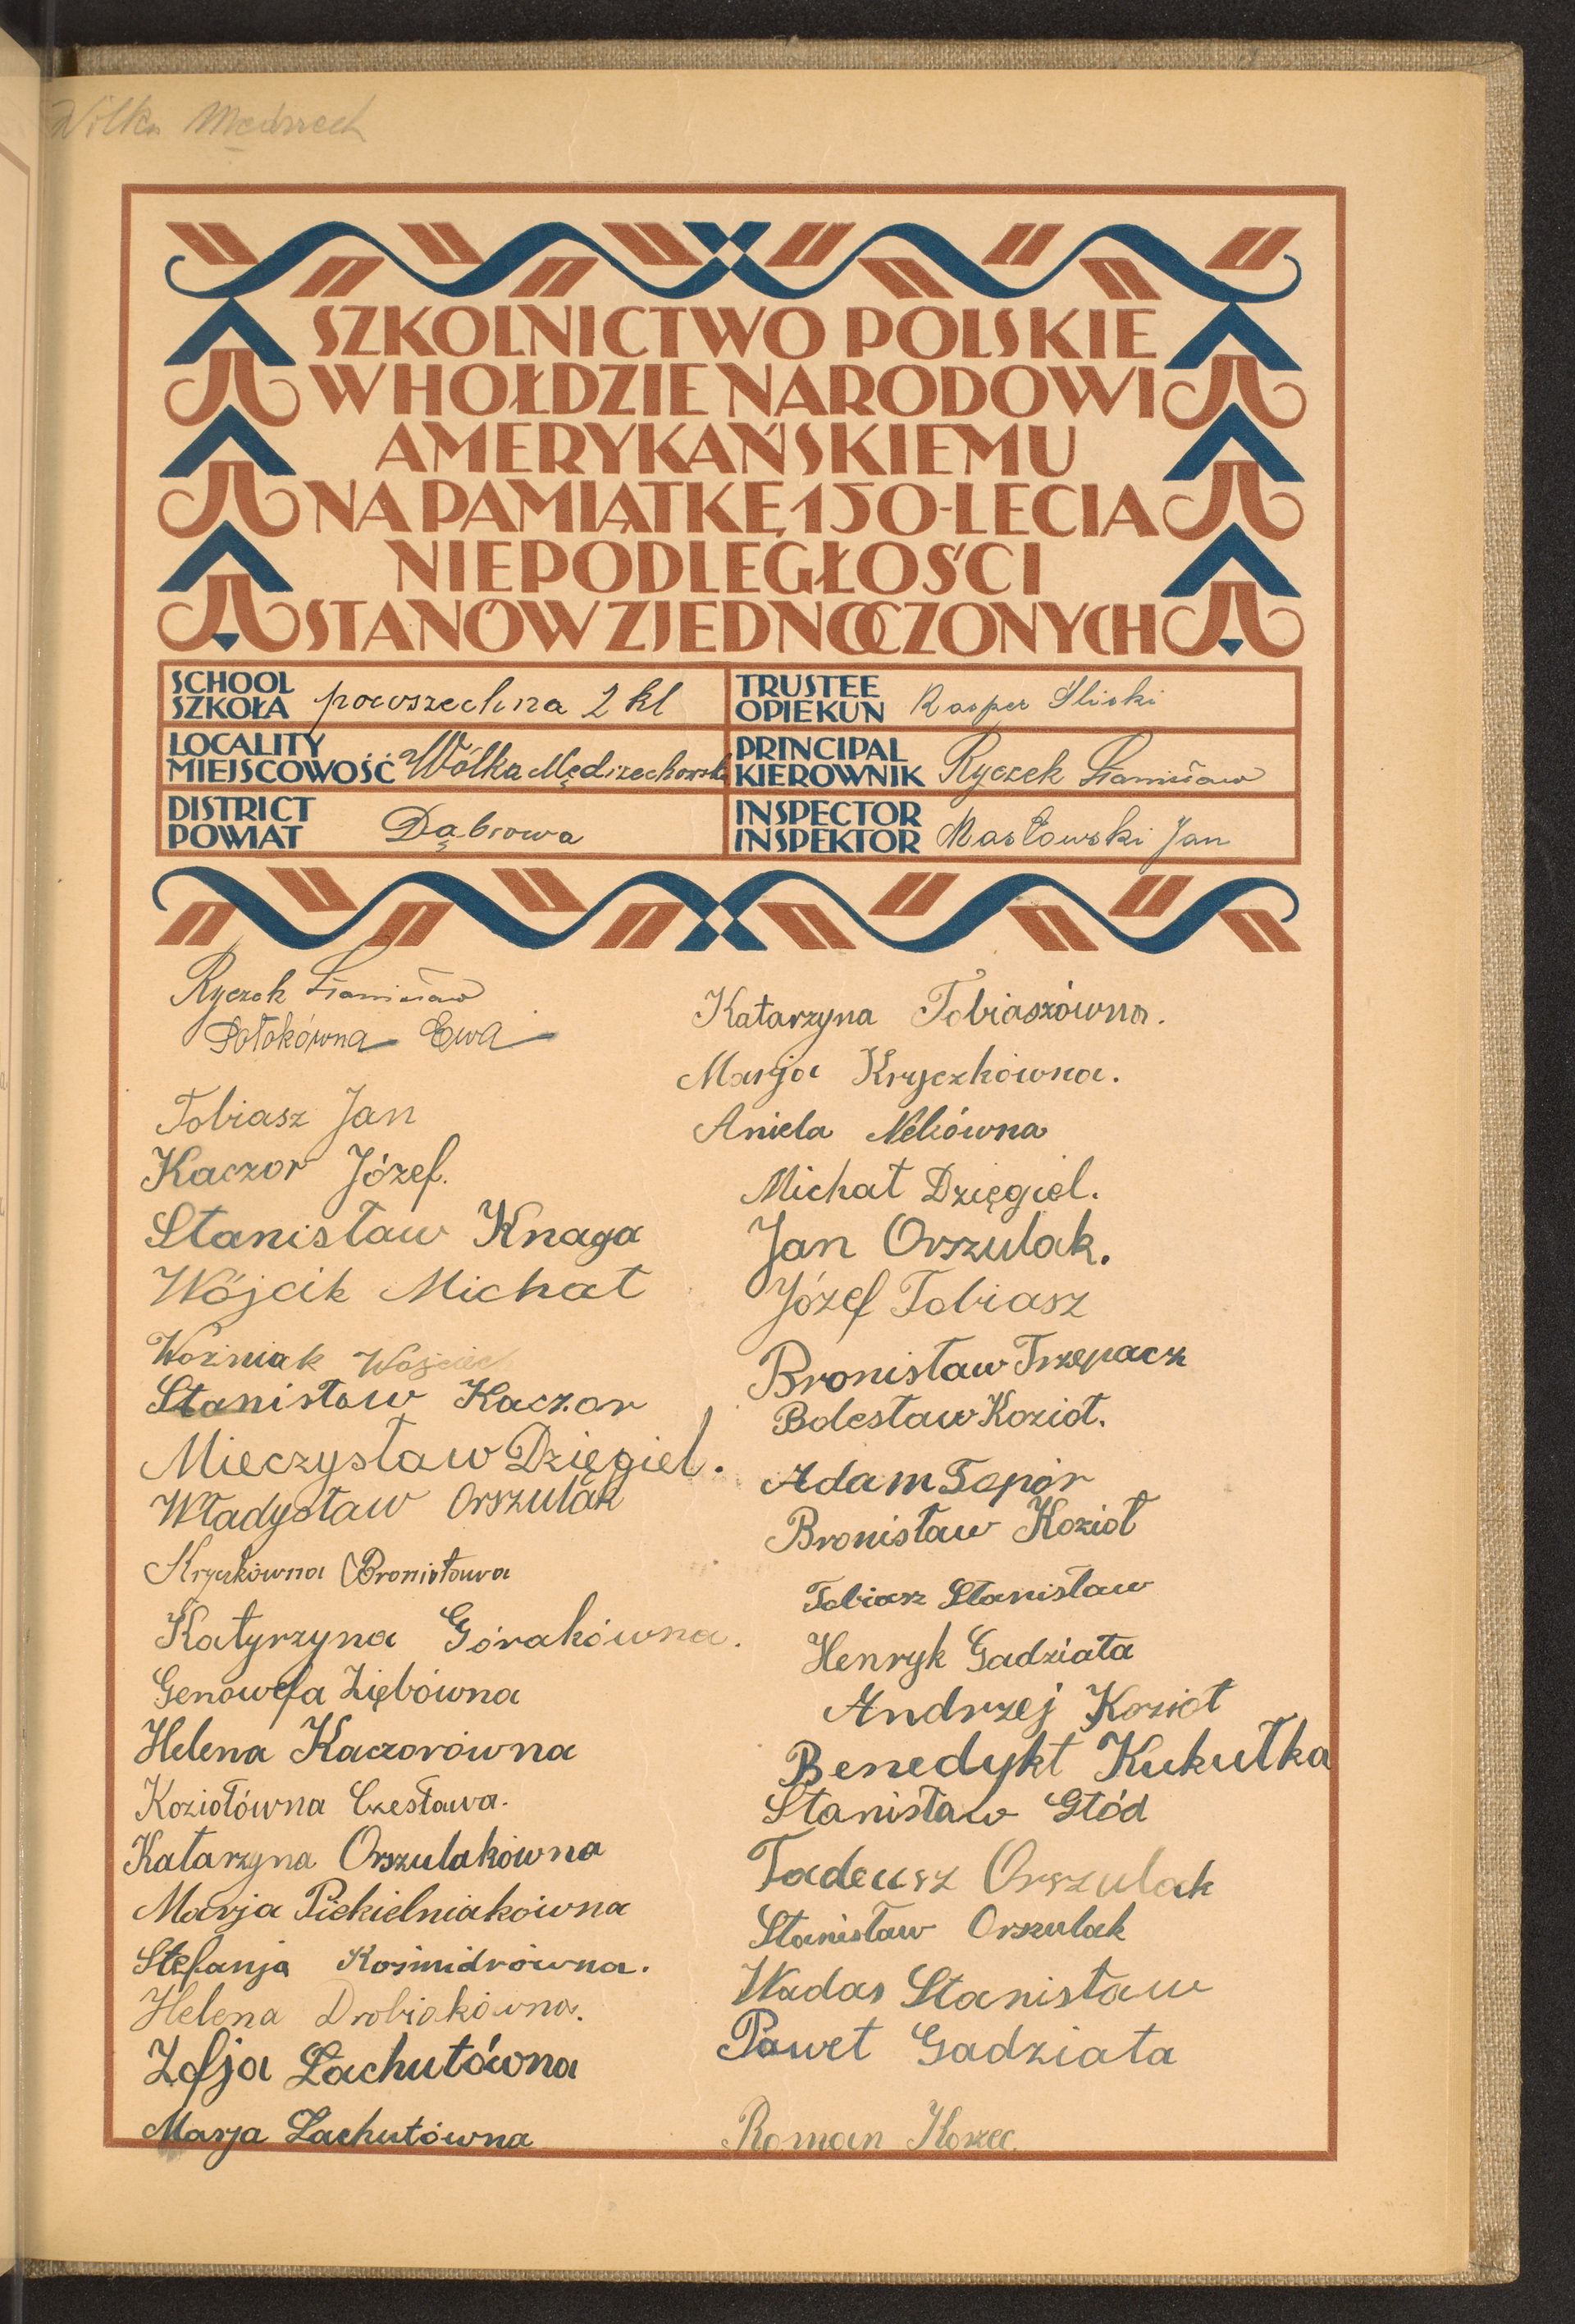 Wólka Mędrzech
SZKOLNICTWO POLSKIE
W HOŁDZIE NARODOWI
AMERYKAŃSKIEMU
NA PAMIĄTKĘ 150-LECIA
NIEPODLEGŁOŚCI
STANÓW ZJEDNOCZONYCH
SCHOOL
SZKOŁA powszechna 2 kl
TRUSTEE
OPIEKUN Kasper Śliski
LOCALITY
MIEJSCOWOŚĆ Wólka Mędrzechowska
PRINCIPAL
KIEROWNIK Ryczek Stanisław
DISTRICT
POWIAT Dąbrowa
INSPECTOR
INSPEKTOR Masłowski Jan
Ryczek Stanisław
Potokówna Ewa
Tobiasz Jan
Kaczor Józef.
Stanisław Knaga
Wójcik Michał
Woźniak Wojciech
Stanisław Kaczor
Mieczysław Dzięgiel.
Władysław Orszulak
Bronisława
Katyrzyna Górakówna.
Genowefa Ziębówna
Helena Kaczorówna
Koziołówna Czesława.
Katarzyna Orszulakówna
Marja Piekielniakówna
Stefanja Kośmidrówna.
Helena Drobiakówna.
Zofja Łachutówna
Marja Łachutówna
Katarzyna Tobiaszówna.
Marja Kryczkówna.
Aniela
Michał Dzięgiel.
Jan Orszulak.
Józef Tobiasz
Bronisław Trzepacz
Bolesław Kozioł.
Adam Topór
Bronisław Kozioł
Tobiasz Stanisław
Henryk Gadziała
Andrzej Kozioł
Benedykt Kukułka
Stanisław Głód
Tadeusz Orszulak
Stanisław Orszulak
Wadas Stanisław
Paweł Gadziała
Roman